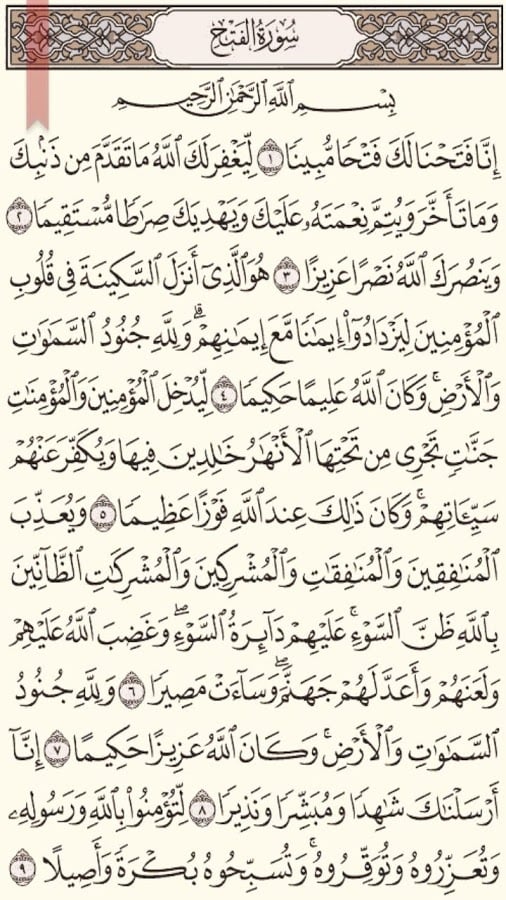 سُورَةُ الفَتْحِ
بِسْمِ ٱللَّهِ ٱلرَّحْمَٰنِ ٱلرَّحِيمِ
إِنَّا فَتَحْنَا لَكَ فَتْحًا مُّبِينًا ١ لِّيَغْفِرَ لَكَ ٱللَّهُ مَا تَقَدَّمَ مِن ذَنۢبِكَ
وَمَا تَأَخَّرَ وَيُتِمَّ نِعْمَتَهُۥ عَلَيْكَ وَيَهْدِيَكَ صِرَٰطًا مُّسْتَقِيمًا ٢
وَيَنصُرَكَ ٱللَّهُ نَصْرًا عَزِيزًا ٣ هُوَ ٱلَّذِىٓ أَنزَلَ ٱلسَّكِينَةَ فِى قُلُوبِ
ٱلْمُؤْمِنِينَ لِيَزْدَادُوٓا۟ إِيمَٰنًا مَّعَ إِيمَٰنِهِمْ ۗ وَلِلَّهِ جُنُودُ ٱلسَّمَٰوَٰتِ
وَٱلْأَرْضِ ۚ وَكَانَ ٱللَّهُ عَلِيمًا حَكِيمًا ٤ لِّيُدْخِلَ ٱلْمُؤْمِنِينَ وَٱلْمُؤْمِنَٰتِ
جَنَّٰتٍ تَجْرِى مِن تَحْتِهَا ٱلْأَنْهَٰرُ خَٰلِدِينَ فِيهَا وَيُكَفِّرَ عَنْهُمْ
سَيِّـَٔاتِهِمْ ۚ وَكَانَ ذَٰلِكَ عِندَ ٱللَّهِ فَوْزًا عَظِيمًا ٥ وَيُعَذِّبَ
ٱلْمُنَٰفِقِينَ وَٱلْمُنَٰفِقَٰتِ وَٱلْمُشْرِكِينَ وَٱلْمُشْرِكَٰتِ ٱلظَّآنِّينَ
بِٱللَّهِ ظَنَّ ٱلسَّوْءِ ۚ عَلَيْهِمْ دَآئِرَةُ ٱلسَّوْءِ ۖ وَغَضِبَ ٱللَّهُ عَلَيْهِمْ
وَلَعَنَهُمْ وَأَعَدَّ لَهُمْ جَهَنَّمَ ۖ وَسَآءَتْ مَصِيرًا ٦ وَلِلَّهِ جُنُودُ
ٱلسَّمَٰوَٰتِ وَٱلْأَرْضِ ۚ وَكَانَ ٱللَّهُ عَزِيزًا حَكِيمًا ٧ إِنَّآ
أَرْسَلْنَٰكَ شَٰهِدًا وَمُبَشِّرًا وَنَذِيرًا ٨ لِّتُؤْمِنُوا۟ بِٱللَّهِ وَرَسُولِهِۦ
وَتُعَزِّرُوهُ وَتُوَقِّرُوهُ ۚ وَتُسَبِّحُوهُ بُكْرَةً وَأَصِيلًا ٩